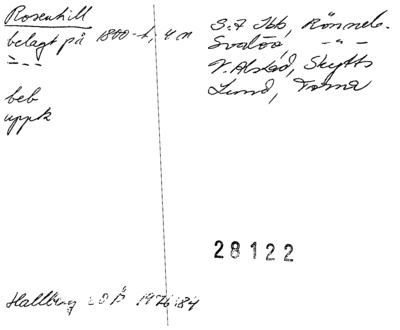 Rosenhill
belagt på 1800-t, 4 n
beb
uppk
S:t Ibb, Rönneb.
Svalöv, -"-
V. Alstad, Skytts
Lund, Torna
28122
Hallberg 1976:84